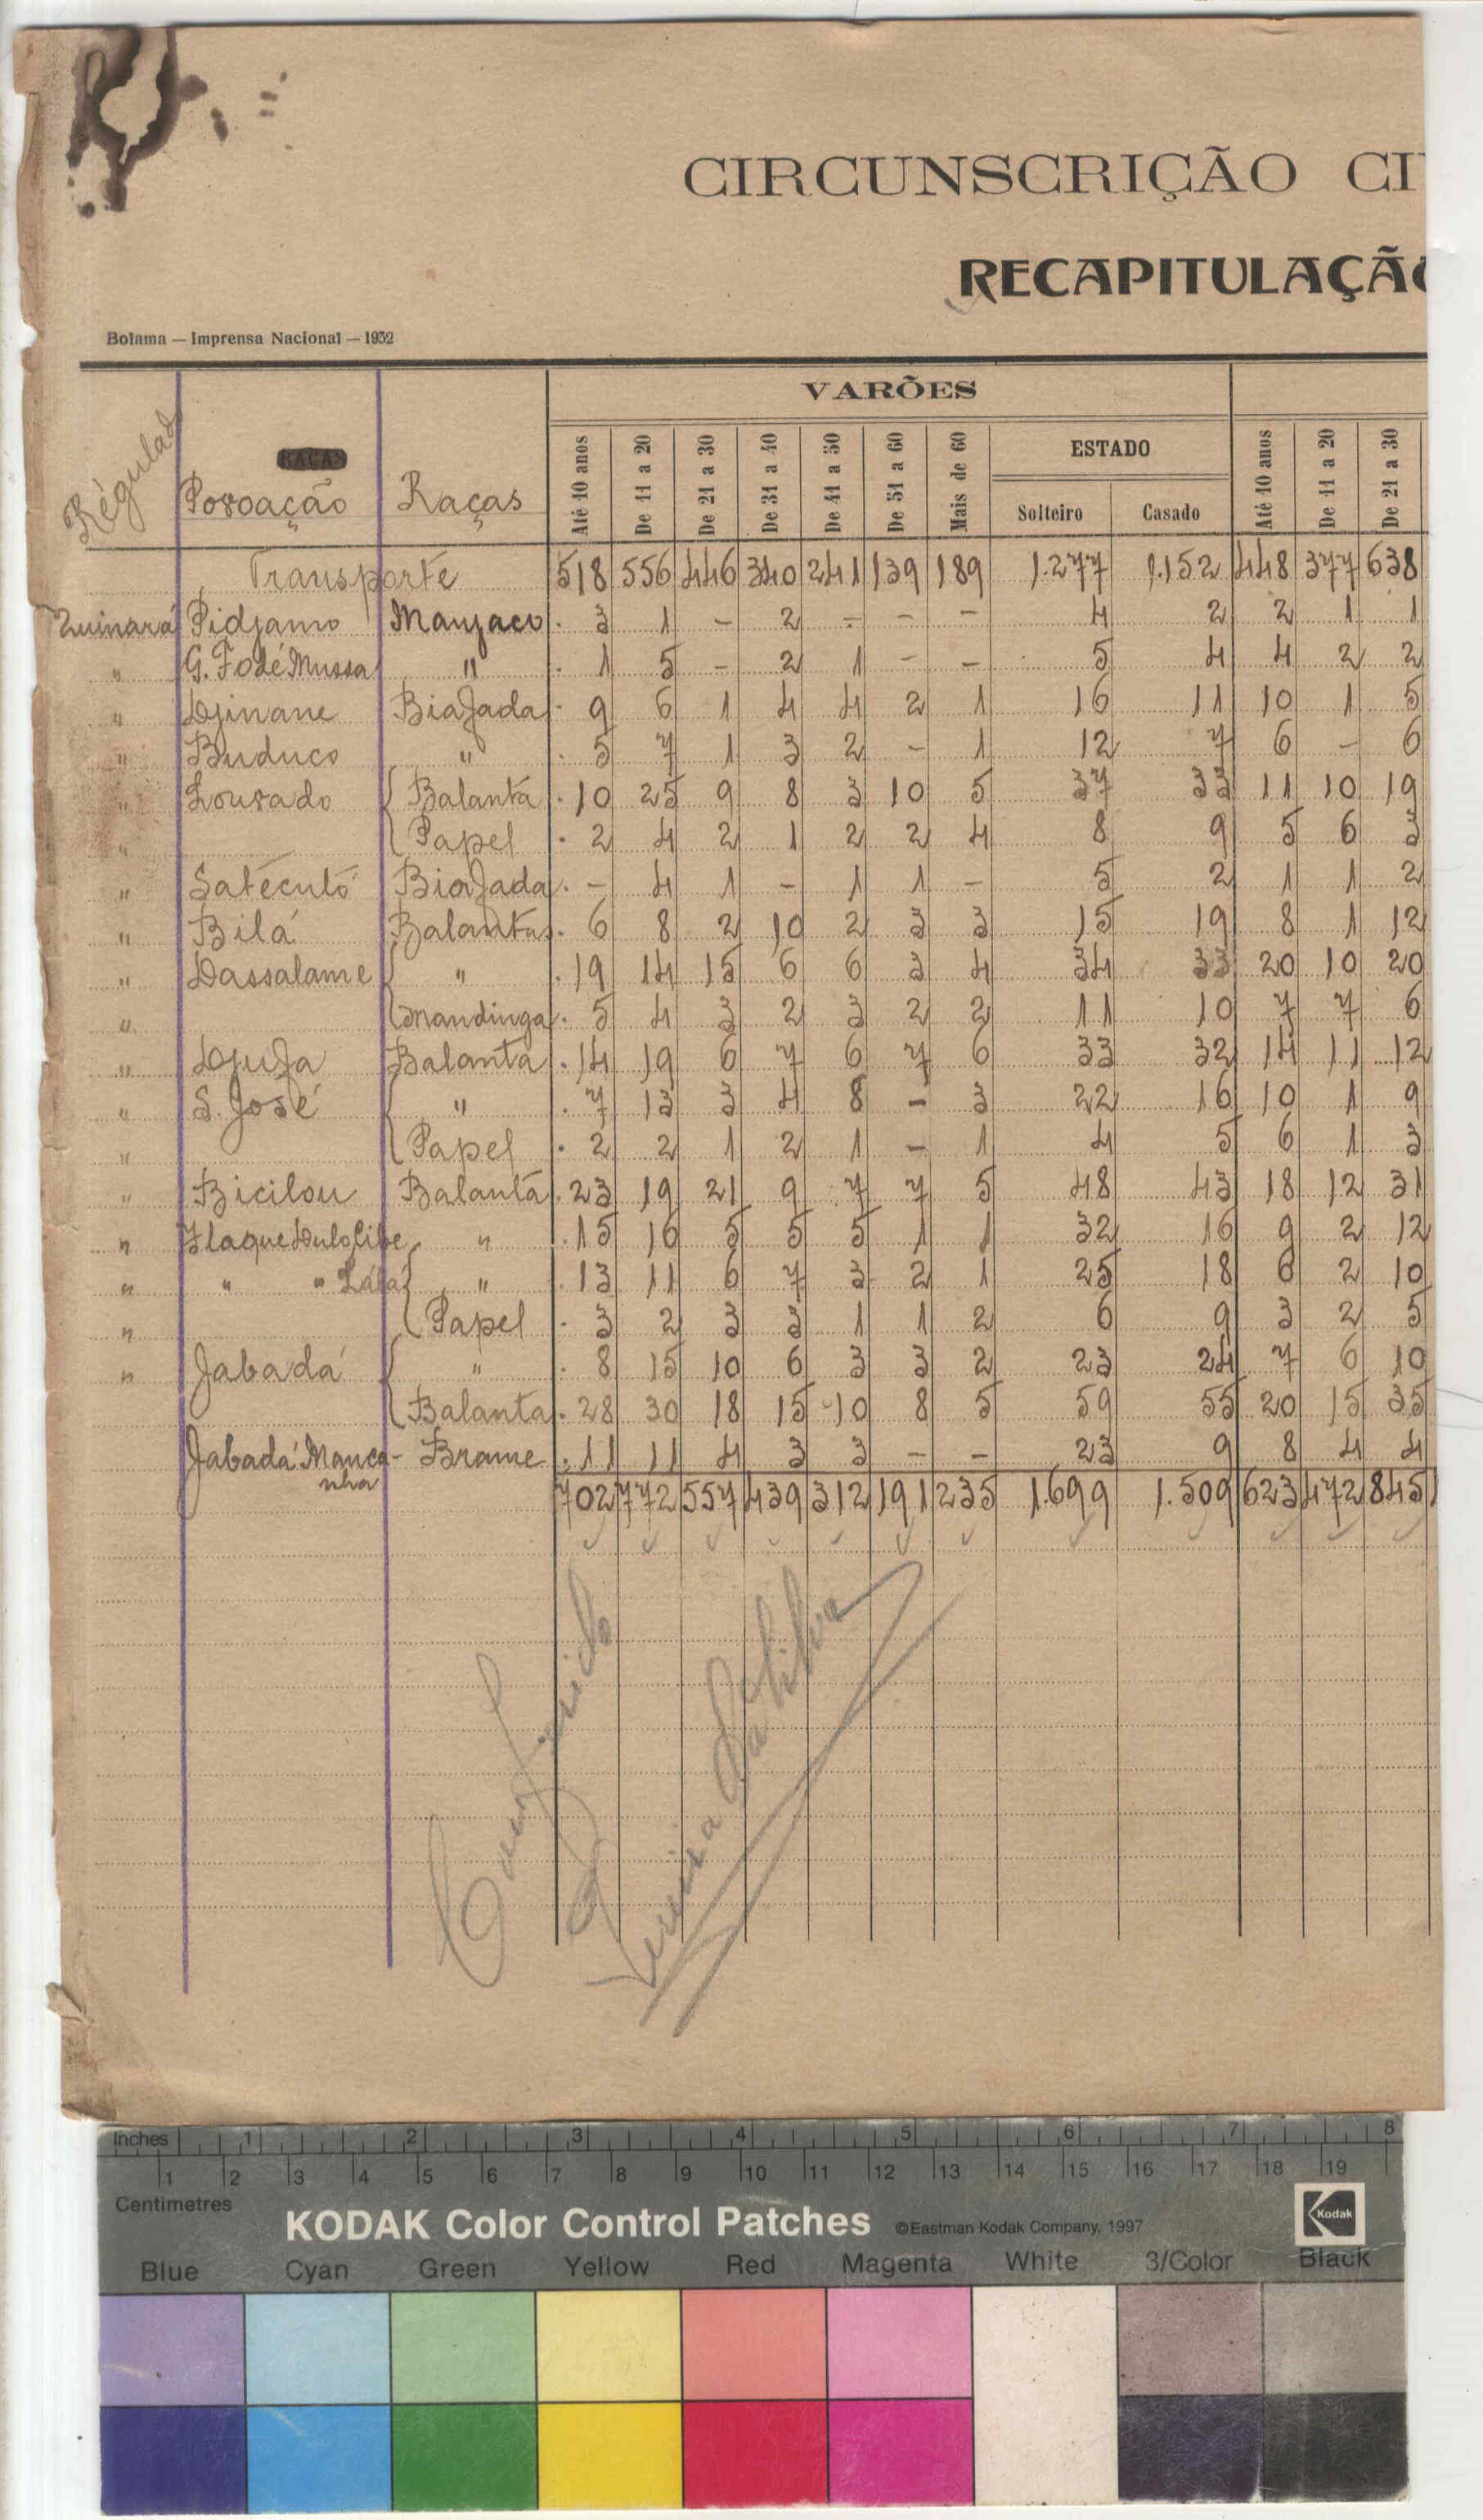 CIRCUNSCRIÇÃO CI
RECAPITULAÇÃO
Bolama — Imprensa Nacional — 1932
VARÕES
Régulad Povoação Raças Até 10 anos De 11 a 20 De 21 a 30 De 31 a 40 De 41 a 50 De 51 a 60 Mais de 60 ESTADO Até 10 anos De 11 a 20 De 21 a 30
Solteiro Casado
Transporte 518 556 446 340 241 139 189 1.277 1.152 448 377 638
Quinará Pidjamo Manjaco 3 1 - 2 - - - 4 2 2 1 1
" G. Fodé Mussa " 1 5 - 2 1 - - 5 4 4 2 2
" Djinane Biafada 9 6 1 4 4 2 1 16 11 10 1 5
" Buduco " 5 7 1 3 2 - 1 12 7 6 - 6
" Lourado Balanta 10 25 9 8 3 10 5 37 33 11 10 19
" Papel 2 4 2 1 2 2 4 8 9 5 6 3
" Satécutó Biafada - 4 1 - 1 1 - 5 2 1 1 2
" Bilá Balantas 6 8 2 10 2 3 3 15 19 8 1 12
" Dassalame " 19 14 15 6 6 3 4 34 33 20 10 20
" Mandinga 5 4 3 2 3 2 2 11 10 7 7 6
" Djufa Balanta 14 19 6 7 6 7 6 33 32 14 11 12
" S. José " 7 13 3 4 8 - 3 22 16 10 1 9
" Papel 2 2 1 2 1 - 1 4 5 6 1 3
" Bicilou Balanta 23 19 21 9 7 7 5 48 43 18 12 31
" Flaque Dulo Cibe " 15 16 5 5 5 1 1 32 16 9 2 12
" " " Lálá " 13 11 6 7 3 2 1 25 18 6 2 10
" Papel 3 2 3 3 1 1 2 6 9 3 2 5
" Jabadá " 8 15 10 6 3 3 2 23 24 7 6 10
Balanta 28 30 18 15 10 8 5 59 55 20 15 35
Jabadá Manca- Brame 11 11 4 3 3 - - 23 9 8 4 4
nha
702 772 557 439 312 191 235 1.699 1.509 623 472 845
Conferido
Inches 1 2 3 4 5 6 7 8
1 2 3 4 5 6 7 8 9 10 11 12 13 14 15 16 17 18 19
Centimetres
KODAK Color Control Patches ©Eastman Kodak Company, 1997 Kodak
Blue Cyan Green Yellow Red Magenta White 3/Color Black